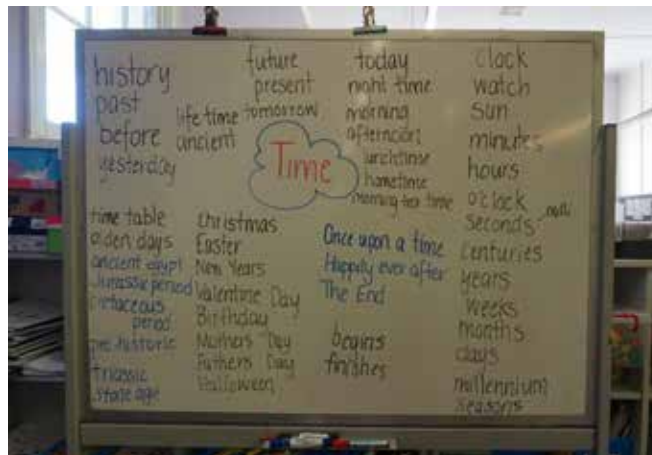 history
past
before
yesterday
life time
ancient
future
present
tomorrow
Time
today
night time
morning
afternoon
lunchtime
hometime
morning tea time
clock
watch
sun
minutes
hours
o'clock
seconds
centuries
years
weeks
months
days
millennium
seasons
time table
olden days
ancient egypt
Jurassic period
cretaceous
period
pre historic
triassic
stone age
christmas
Easter
New Years
Valentine Day
Birthday
Mothers Day
Fathers Day
Halloween
Once upon a time
Happily ever after
The End
begins
finishes